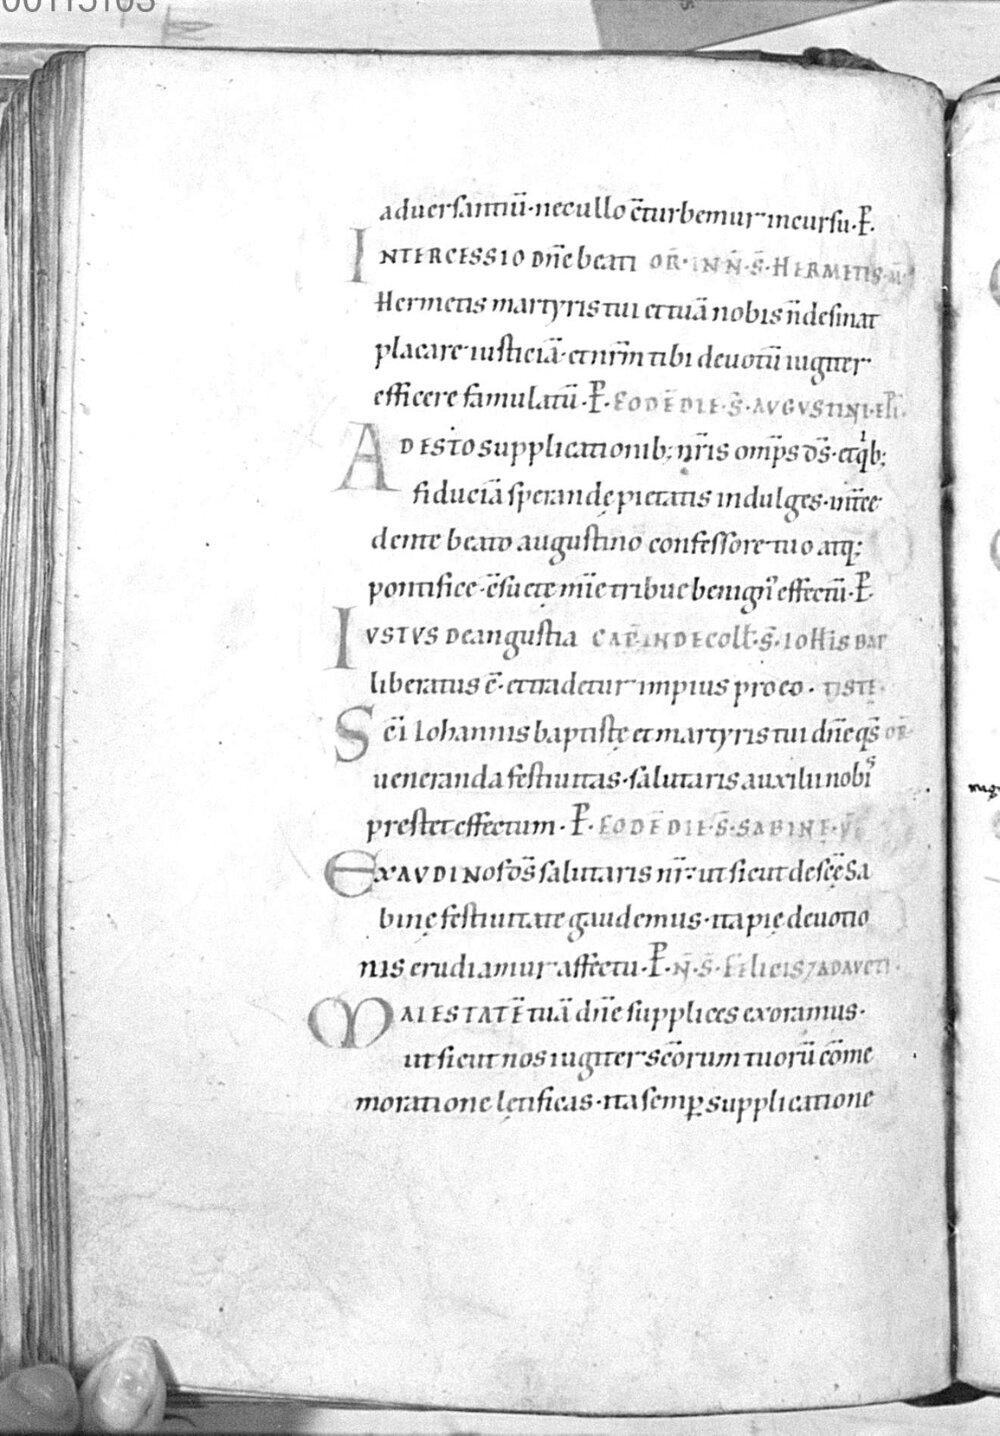 00115103
aduersantiū·nec ullo c̄turbemur incursu·P̄.
INTERCESSIO Dn̄e beati OR̄·IN N̄·S̄·HERMETIS·M̄·
Hermetis martyris tui et tuā nobis n̄ desinat
placare iusticiā·et nr̄m tibi deuotū iugiter
efficere famulatū·P̄·EODĒ DIE·S̄·AVGVSTINI·EP̄I·
ADESTO supplicationib; nr̄is omp̄s ds̄·et qͥb;
fiduciā sperandę pietatis indulges·int̄ce
dente beato augustino confessore tuo atq;
pontifice·c̄suetę mīe tribue benignꝰ effectū·P̄·
IVSTVS De angustia CAP̄·IN DECOLL̄·S̄·IOHIS BAP
liberatus ē·et tradetur impius pro eo· TISTĘ·
Sc̄i Iohannis baptistę et martyris tui dn̄e qs̄ OR̄·
ueneranda festiuitas·salutaris auxilii nobiˢ
prestet effectum·P̄·EODĒ DIE·S̄·SABINĘ·V̄
EXAVDI Nos ds̄ salutaris nr̄·ut sicut de scę̄ Sa
binę festiuitate gaudemus·ita pię deuotio
nis erudiamur affectu·P̄·N̄·S̄·FELICIS ⁊ ADAVCTI·
MAIESTATĒ tuā dn̄e supplices exoramus·
ut sicut nos iugiter sc̄orum tuorū com̄e
moratione lętificas·ita semꝑ supplicatione